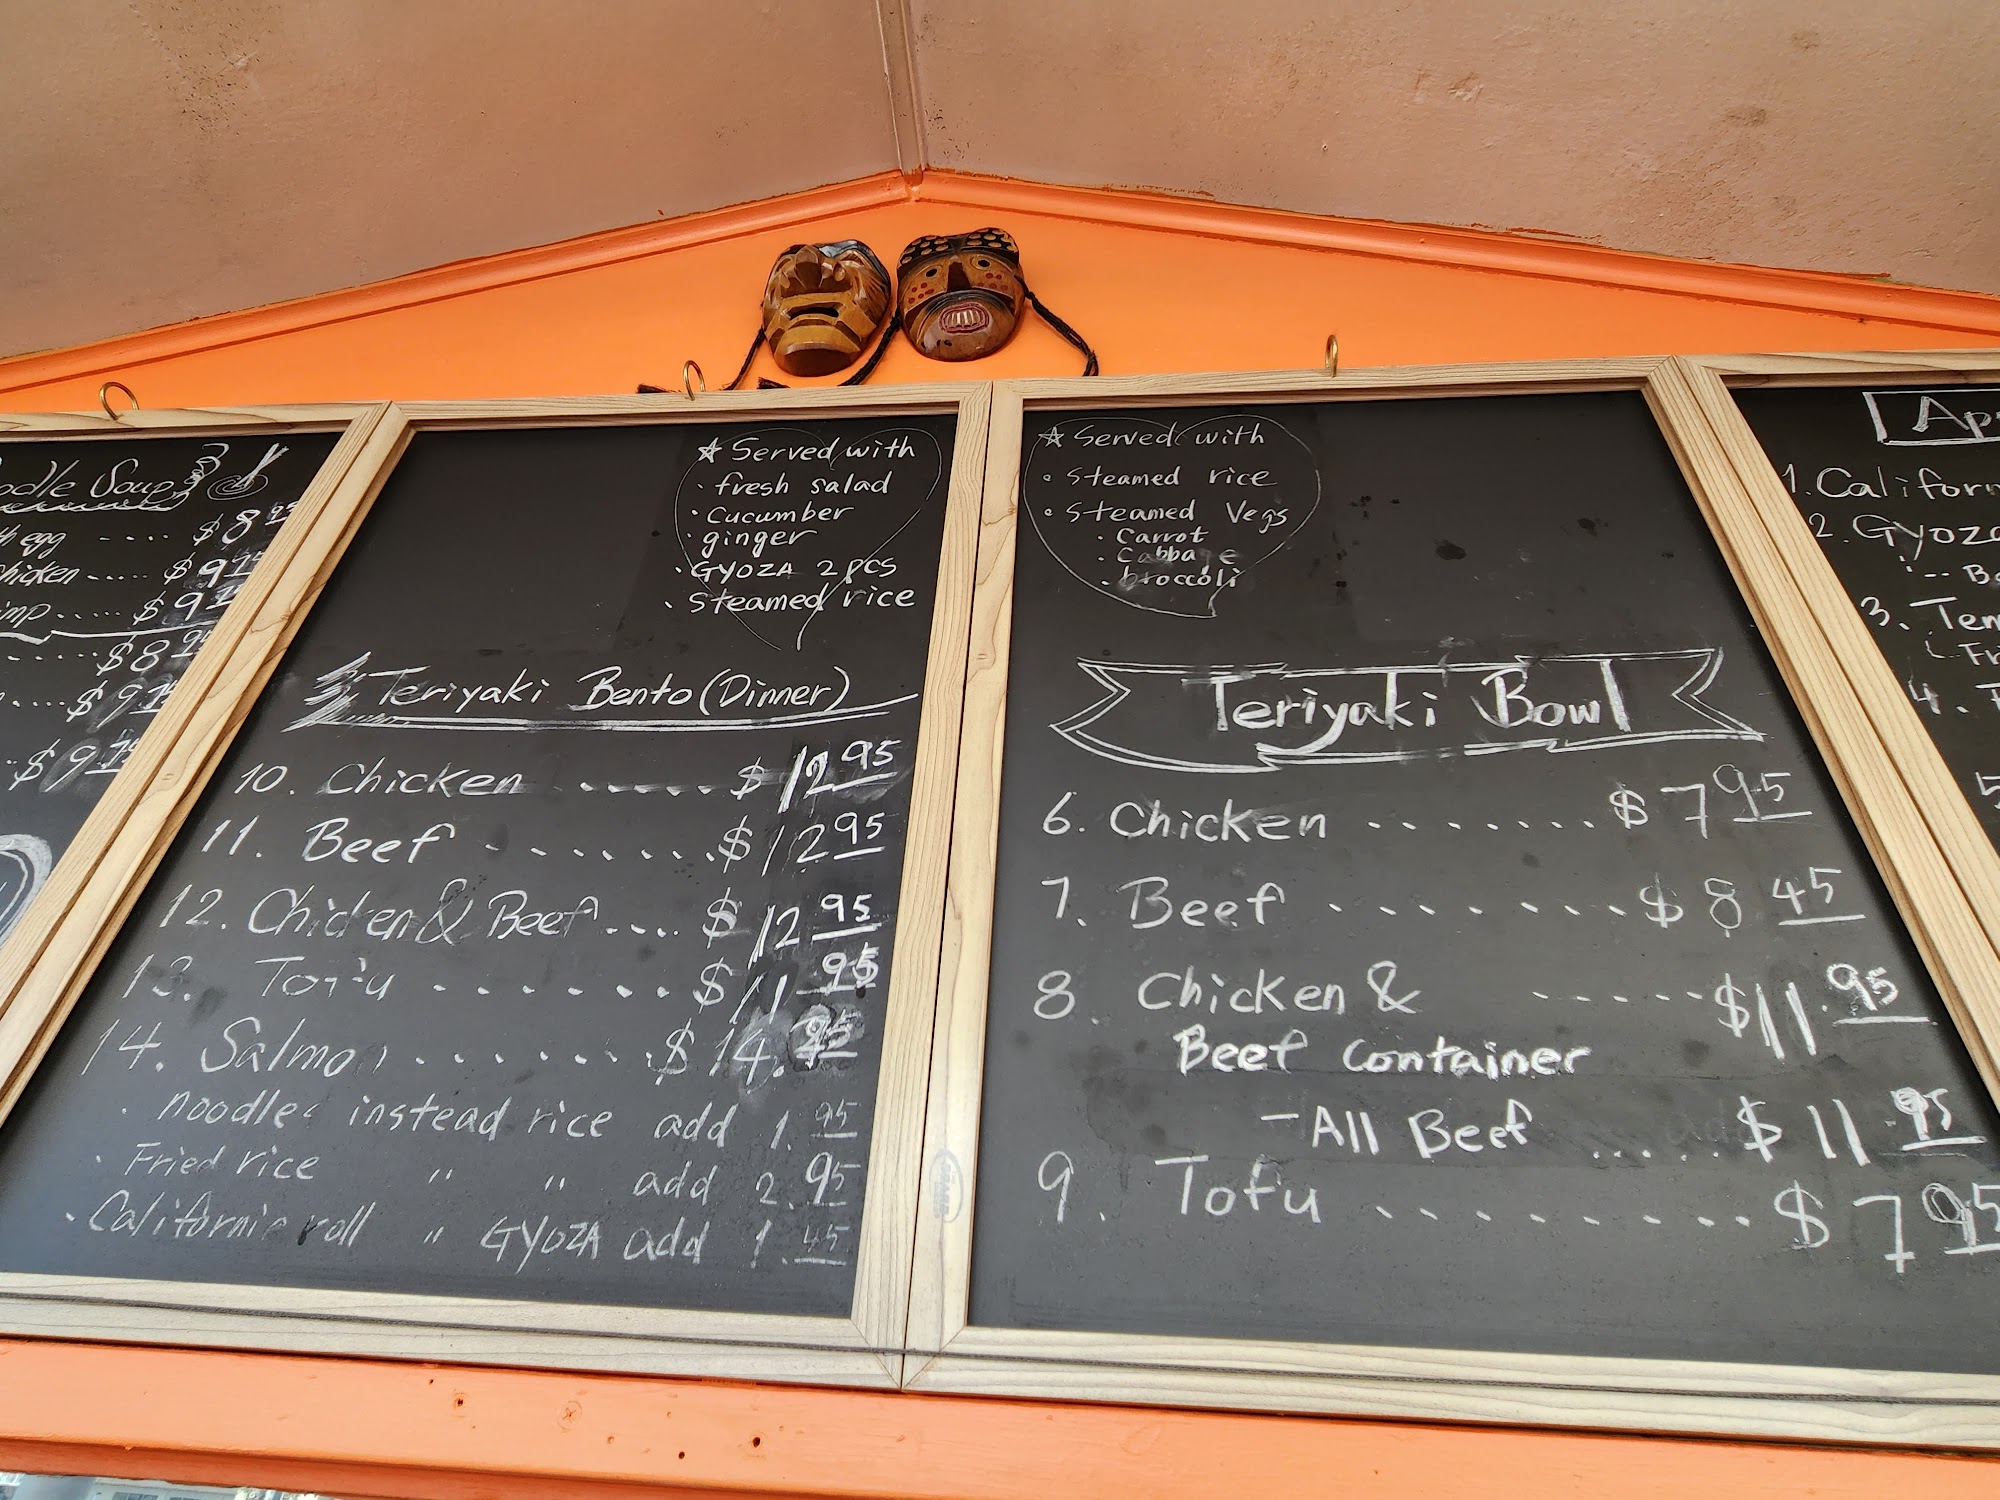 Soup
egg ---- $8 95
chicken ..... $9
..... $9
..... $8
.... $9
$9
★ Served with
· fresh salad
· cucumber
· ginger
· GYOZA 2 pcs
· steamed rice
Teriyaki Bento (Dinner)
10. Chicken ...... $12 95
11. Beef ........ $12 95
12. Chicken & Beef .... $12 95
13. Tofu ....... $11 95
14. Salmon ........ $14.
· noodles instead rice add 1. 95
· Fried rice " " add 2. 95
· California roll " GYOZA add 1. 45
☆ Served with
∘ steamed rice
∘ steamed Vegs
· Carrot
· Cabbage
· broccoli
Teriyaki Bowl
6. Chicken ........ $7 95
7. Beef ........ $8 45
8. Chicken & ------ $11. 95
Beef Container
- All Beef ...... $11. 95
9. Tofu .......... $7 95
Ap
1. Californ
2. Gyoza
3. Tem
4.
5